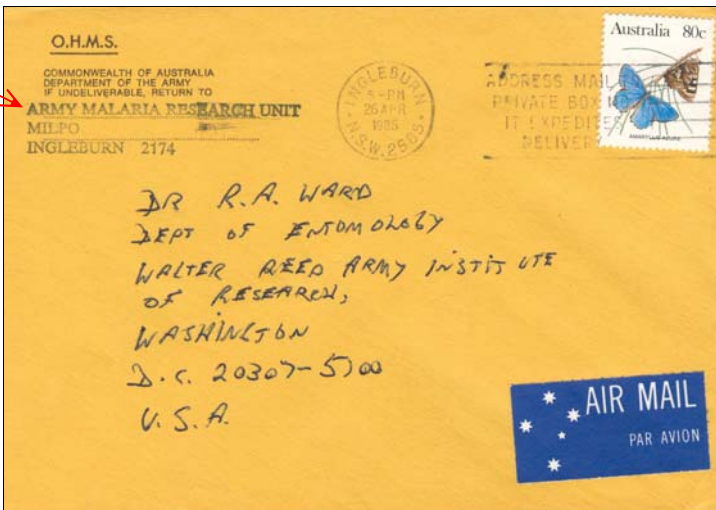 O.H.M.S.
COMMONWEALTH OF AUSTRALIA
DEPARTMENT OF THE ARMY
IF UNDELIVERABLE, RETURN TO
ARMY MALARIA RESEARCH UNIT
MILPO
INGLEBURN 2174
INGLEBURN
5-PM
26 APR
1985
N.S.W. 2565
ADDRESS MAIL TO
PRIVATE BOX NO
IT EXPEDITES
DELIVERY
Australia 80c
DR R.A. WARD
DEPT OF ENTOMOLOGY
WALTER REED ARMY INSTITUTE
OF RESEARCH,
WASHINGTON
D.C. 20307-5100
U.S.A.
AIR MAIL
PAR AVION